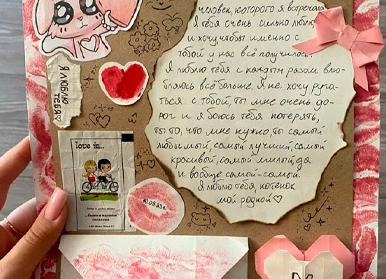 человек, которого я встречала
Я тебя очень сильно люблю
и хочу чтобы именно с
тобой у нас всё получилось.
Я люблю тебя с каждым разом влю-
бляюсь всё больше. Я не хочу руга-
ться с тобой, ты мне очень до-
рог и я боюсь тебя потерять,
ты то, что мне нужно, ты самый
любимый, самый лучший, самый
красивый, самый милый да
и вообще самый-самый
Я люблю тебя, котёнок
мой родной♡
Я ЛЮБЛЮ
ТЕБЯ!
love is...